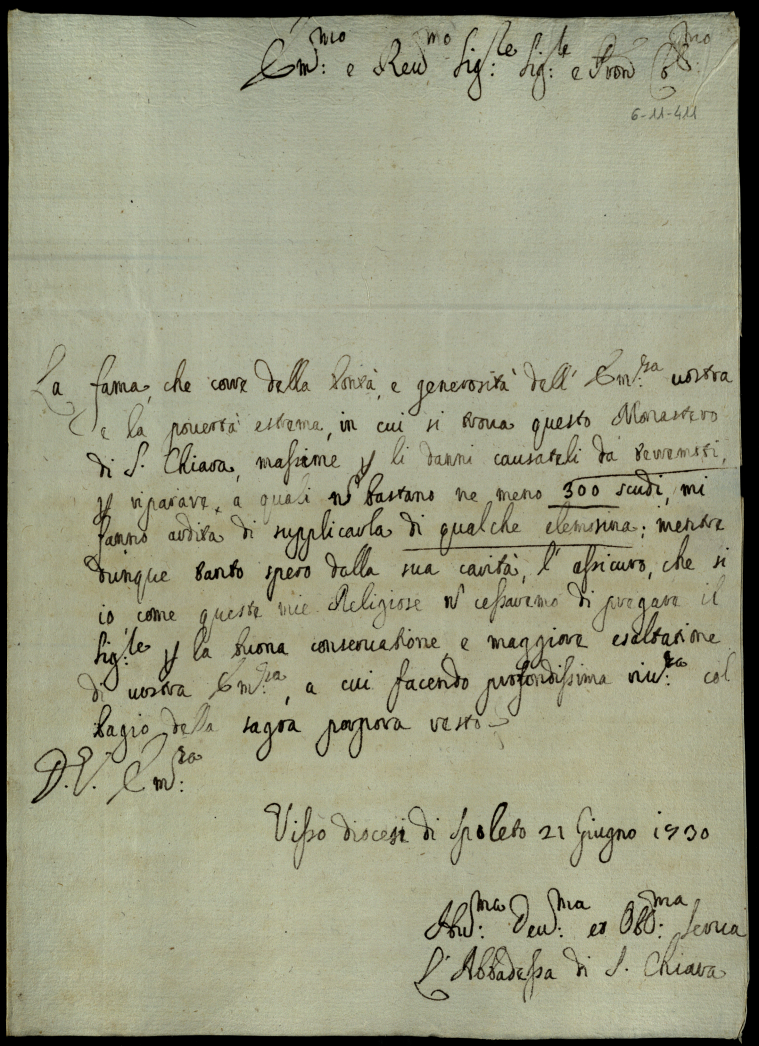 Em.mo e Reu.mo Sig.le Sig.le e Pron Co.mo
6-11-411
La fama, che corre della bontà, e generosità dell' Em.za uostra
e la pouertà estrema, in cui si troua questo Monastero
di S. Chiara, massime p li danni causateli da terremoti,
p riparare, a quali nō bastano ne meno 300 scudi, mi
fanno ardita di supplicarla di qualche elemosina; mentre
dunque tanto spero dalla sua carità, l'assicuro, che sì
io come queste mie Religiose nō cessaremo di pregare il
Sig.le p la buona conseruatione, e maggiore esaltatione
di uostra Em.za, a cui facendo profondissima riu.za col
bagio della sagra porpora resto
D. V. Em.za
Visso diocesi di Spoleto 21 Giugno 1730
Hu.ma Deu.ma et Obb.ma Serua
L'Abbadessa di S. Chiara